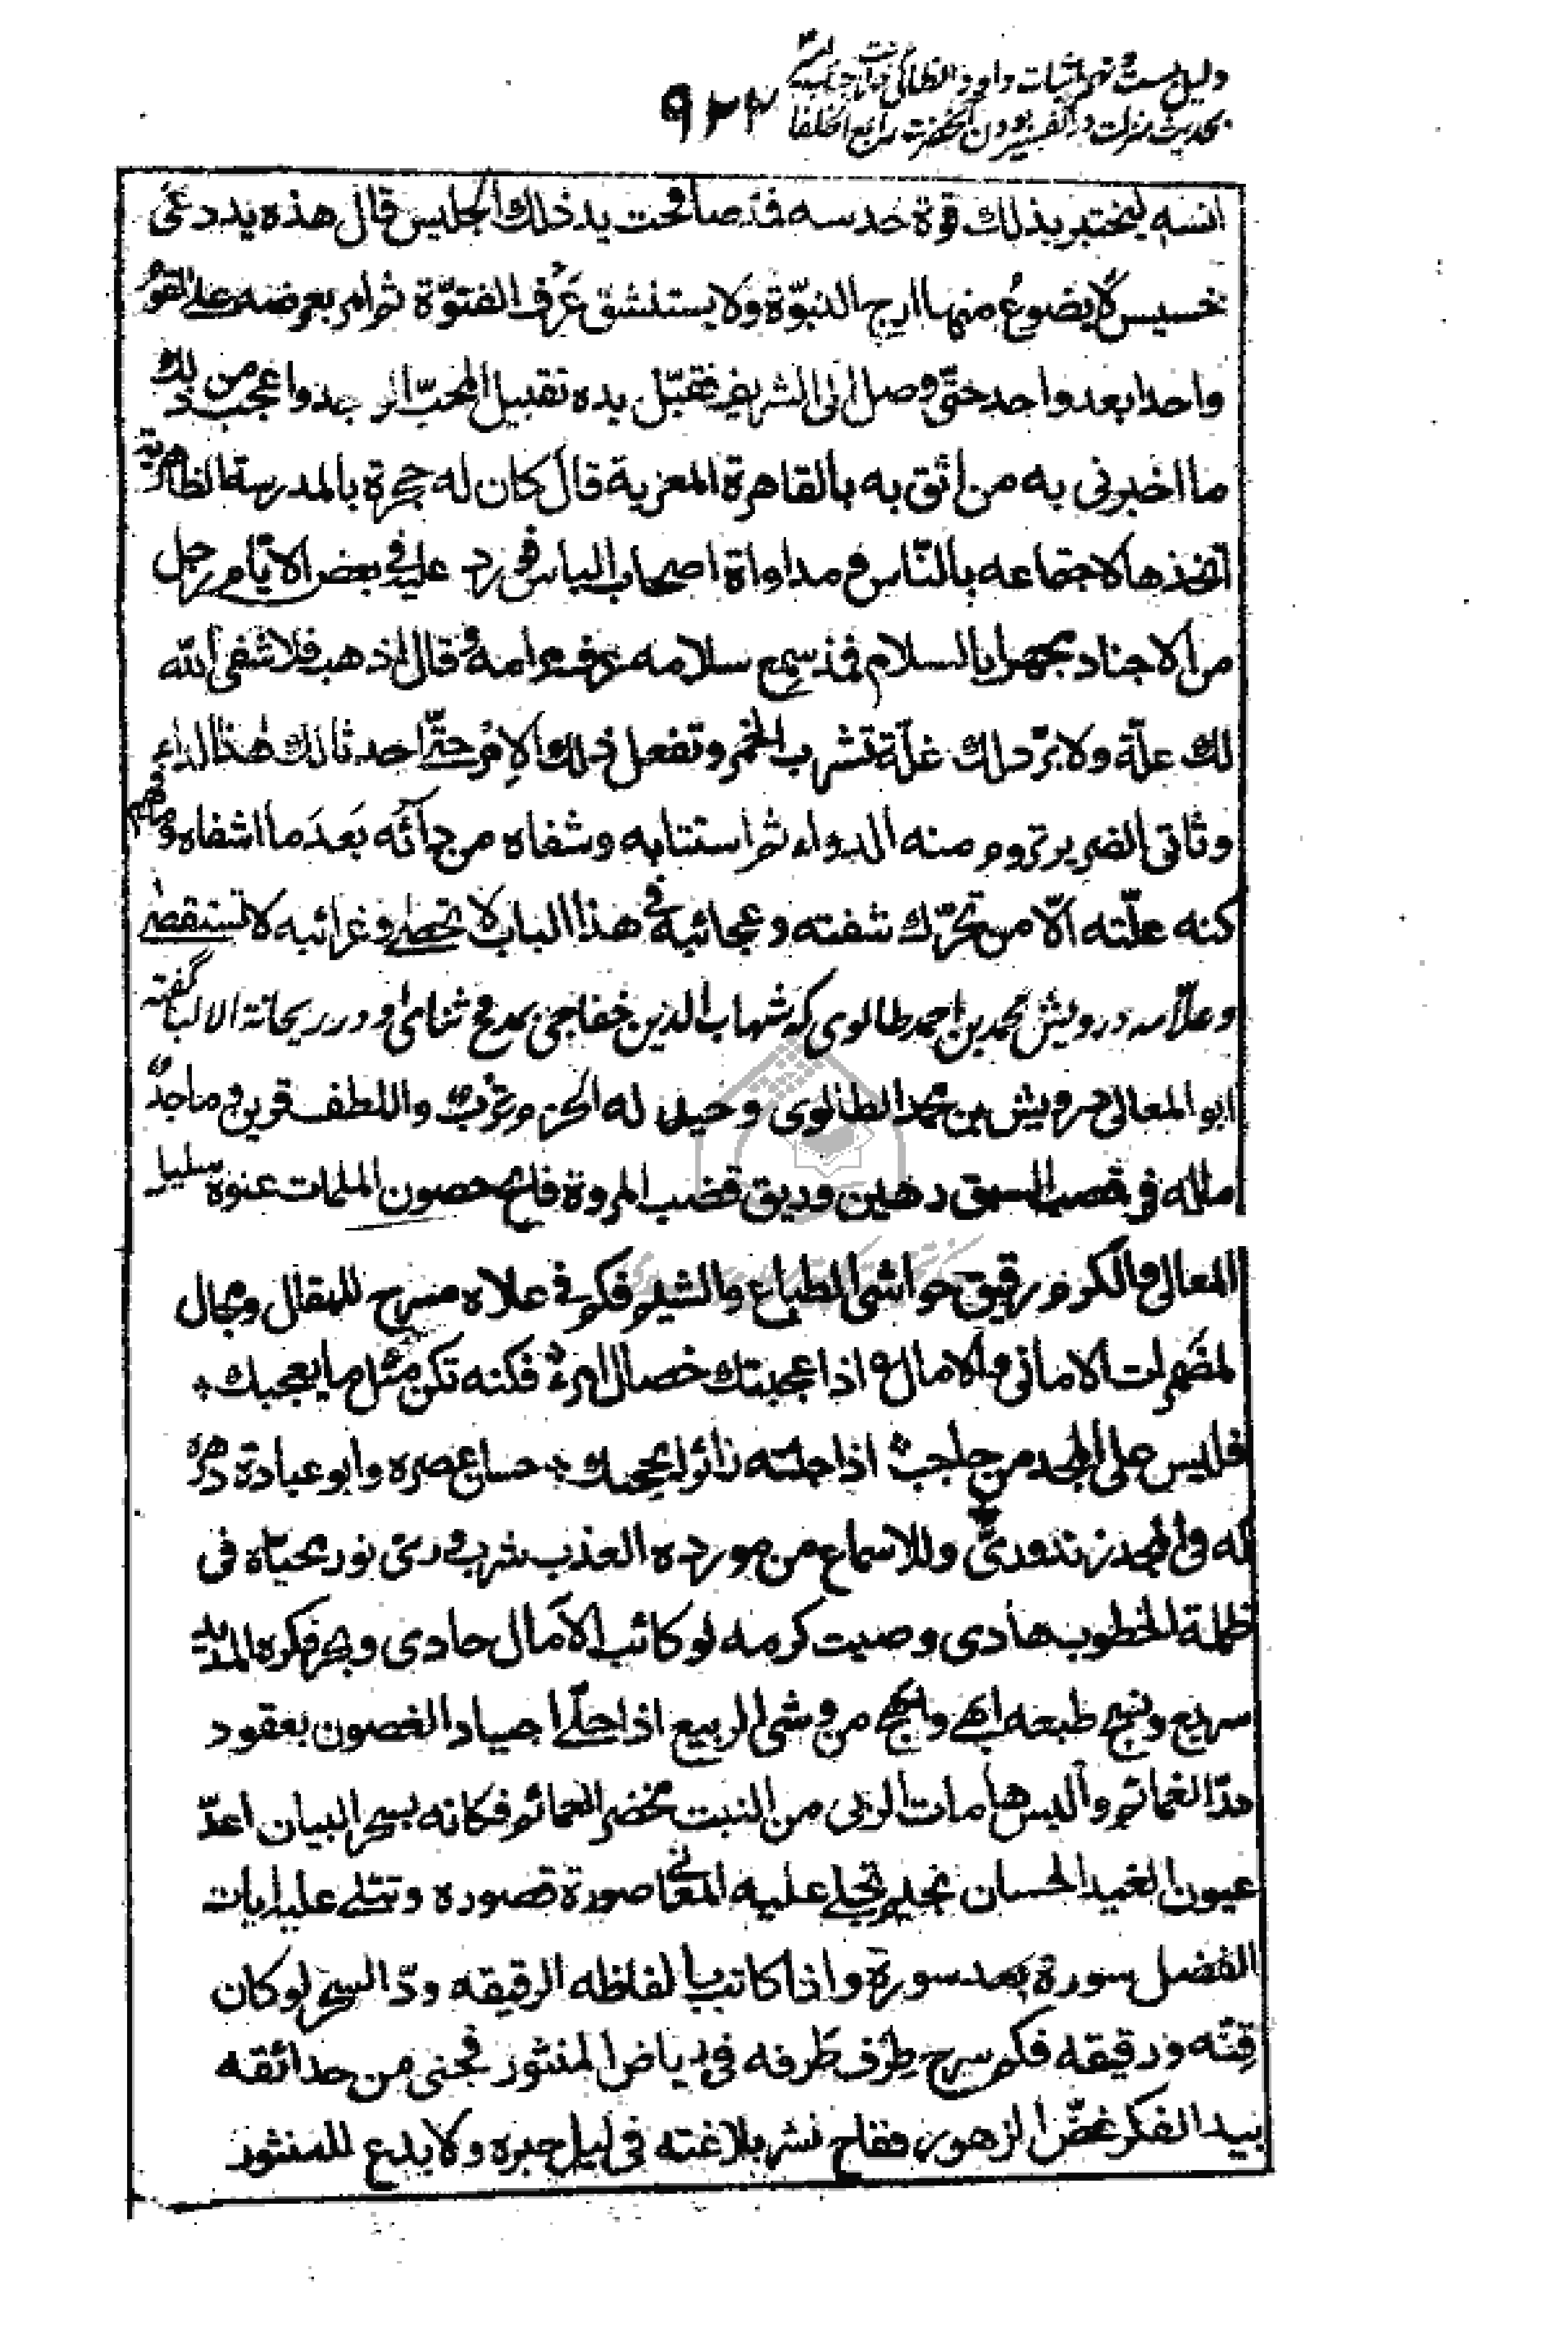 دلیل بست و نهم اثبات داود انطاکی
بحدیث منزلت در نفسیر بودن آنحضرت رابع الخلفا ۹۲۲
انسه ليختبر بذلك قوة حدسه فمذ صافحت يد ذلك الجليس قال هذه يد دعى
خسيس لا يضوع منها اريج النبوّة ولا يستنشق عَرْف الفتوّة ثم امر بعرضه على القوم
واحدا بعد واحد حتّى وصل الى الشريف فقبّل يده تقبيل المحبّ واعجب من ذلك
ما اخبرنى به من اثق به بالقاهرة المعزية قال كان له حجرة بالمدرسة الظاهرية
اتخذها لاجتماعه بالنّاس و مداواة اصحاب الباس فورد عليه فى بعض الايّام رجل
من الاجناد يجهر بالسلام فمذ سمع سلامه عرف مرامه وقال اذهب فلا شفى الله
لك علّة ولا برّد لك غلّة تشرب الخمر وتفعل ذلك الامر حتّى احدثا لك هذا الداء
وتاتى الضرير تروم منه الدواء ثم استتابه وشفاه من دآئه بَعدَ ما اشفاه وما فهم
كنه علّته الّا من تحرّك شفته وعجائبه فى هذا الباب لا تحصى وغرائبه لا تستقصى
وعلّامه درويش محمد بن احمد طالوى كه شهاب الدين خفاجى بمدح وثناى او در ريحانة الالبا گفته
ابو المعالى درويش بن محمد الطالوى وحيد له الحزم وترب واللطف قرين و ماجد
ماله فى قصب السبق رهين وريق قضب المروة فاتح حصون الملمات عنوة سليل
المعالى والكرم رقيق حواشى الطباع والشيم فكم فى علاه مسرح للمقال ومجال
لمضمرات الامانى والامال ۞ اذا اعجبتك خصال امرء ۞ فكنه تكن مثل ما يعجبك ۞
فليس على المجد من حاجب ۞ اذا جئته زائرا يحجبك ۞ حسام عصره وابو عبادة دهره
له فى المجد زند ورىّ وللاسماع من مورده العذب شرب و رىّ نور محياه فى
ظلمة الخطوب هادى وصيت كرمه لو كائب الآمال حادى وبحر فكره المديد
سريع ونهج طبعه ابهى وابهج من وشى الربيع اذا حلّى اجياد الغصون بعقود
درّ الغمائم والبس هامات الربى من النبت مخضر العمائم فكانه بسحر البيان اعدّ
عيون الغيد الحسان نجليه تجلى عليه المعانى صورة فصوره وتتلى عليه ايات
الفضل سورة بعد سورة واذا كاتب بالفاظه الرقيقه ودّ السحر لو كان
قِنّه ورقيقه فكم سرح طِرْف طَرفه فى رياض المنثور فجنى من حدائقه
بيد الفكر غضّ الزهور ففاح نشر بلاغته فى ليل حبره ولا بدع للمنثور